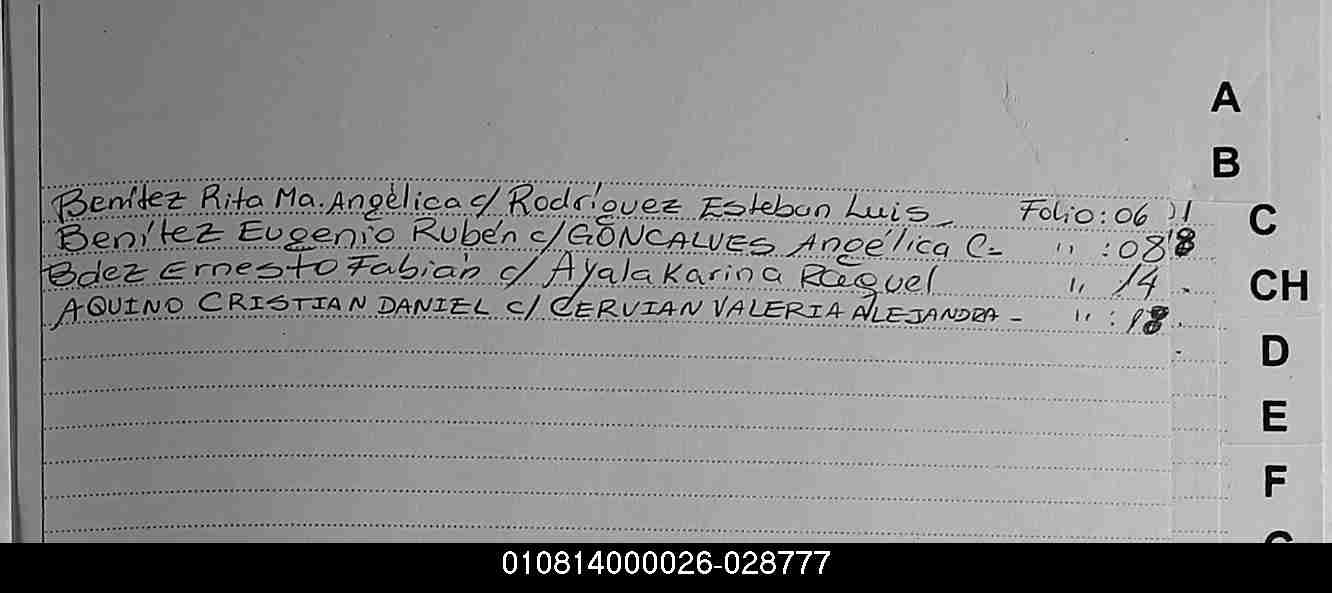 A
B
Benítez Rita Ma. Angélica c/ Rodríguez Esteban Luis - Folio: 06
C
Benítez Eugenio Rubén c/ GONCALVES Angélica C- " : 08
Bdez Ernesto Fabián c/ Ayala Karina Raquel " 14
CH
AQUINO CRISTIAN DANIEL c/ CERVIAN VALERIA ALEJANDRA - " : 18
D
E
F
010814000026-028777